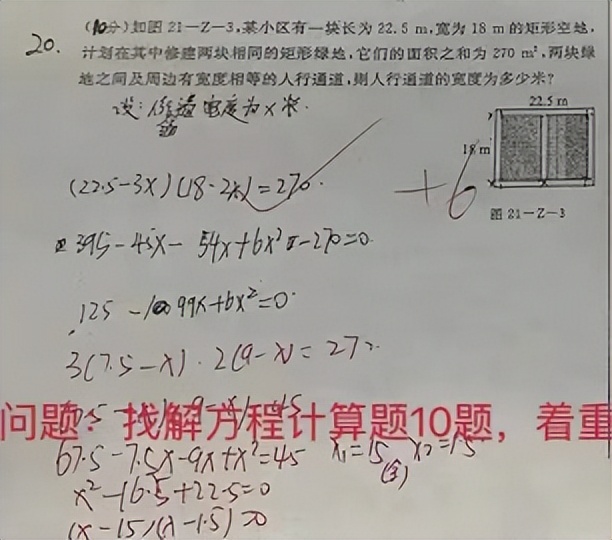 20.
(10分)如图 21-Z-3,某小区有一块长为 22.5 m,宽为 18 m 的矩形空地,
计划在其中修建两块相同的矩形绿地,它们的面积之和为 270 m²,两块绿
地之间及周边有宽度相等的人行通道,则人行通道的宽度为多少米?
22.5 m
18 m
图 21-Z-3
设:人行通道宽度为x米.
(22.5-3x)(18-2x)=270.
+6
395-45x-54x+6x²-270=0.
125-99x+6x²=0.
3(7.5-x)·2(9-x)=27
问题:找解方程计算题10题,着重
67.5-7.5x-9x+x²=45
x₁=15 x₂=1.5
(舍)
x²-16.5+22.5=0
(x-15)(x-1.5)=0